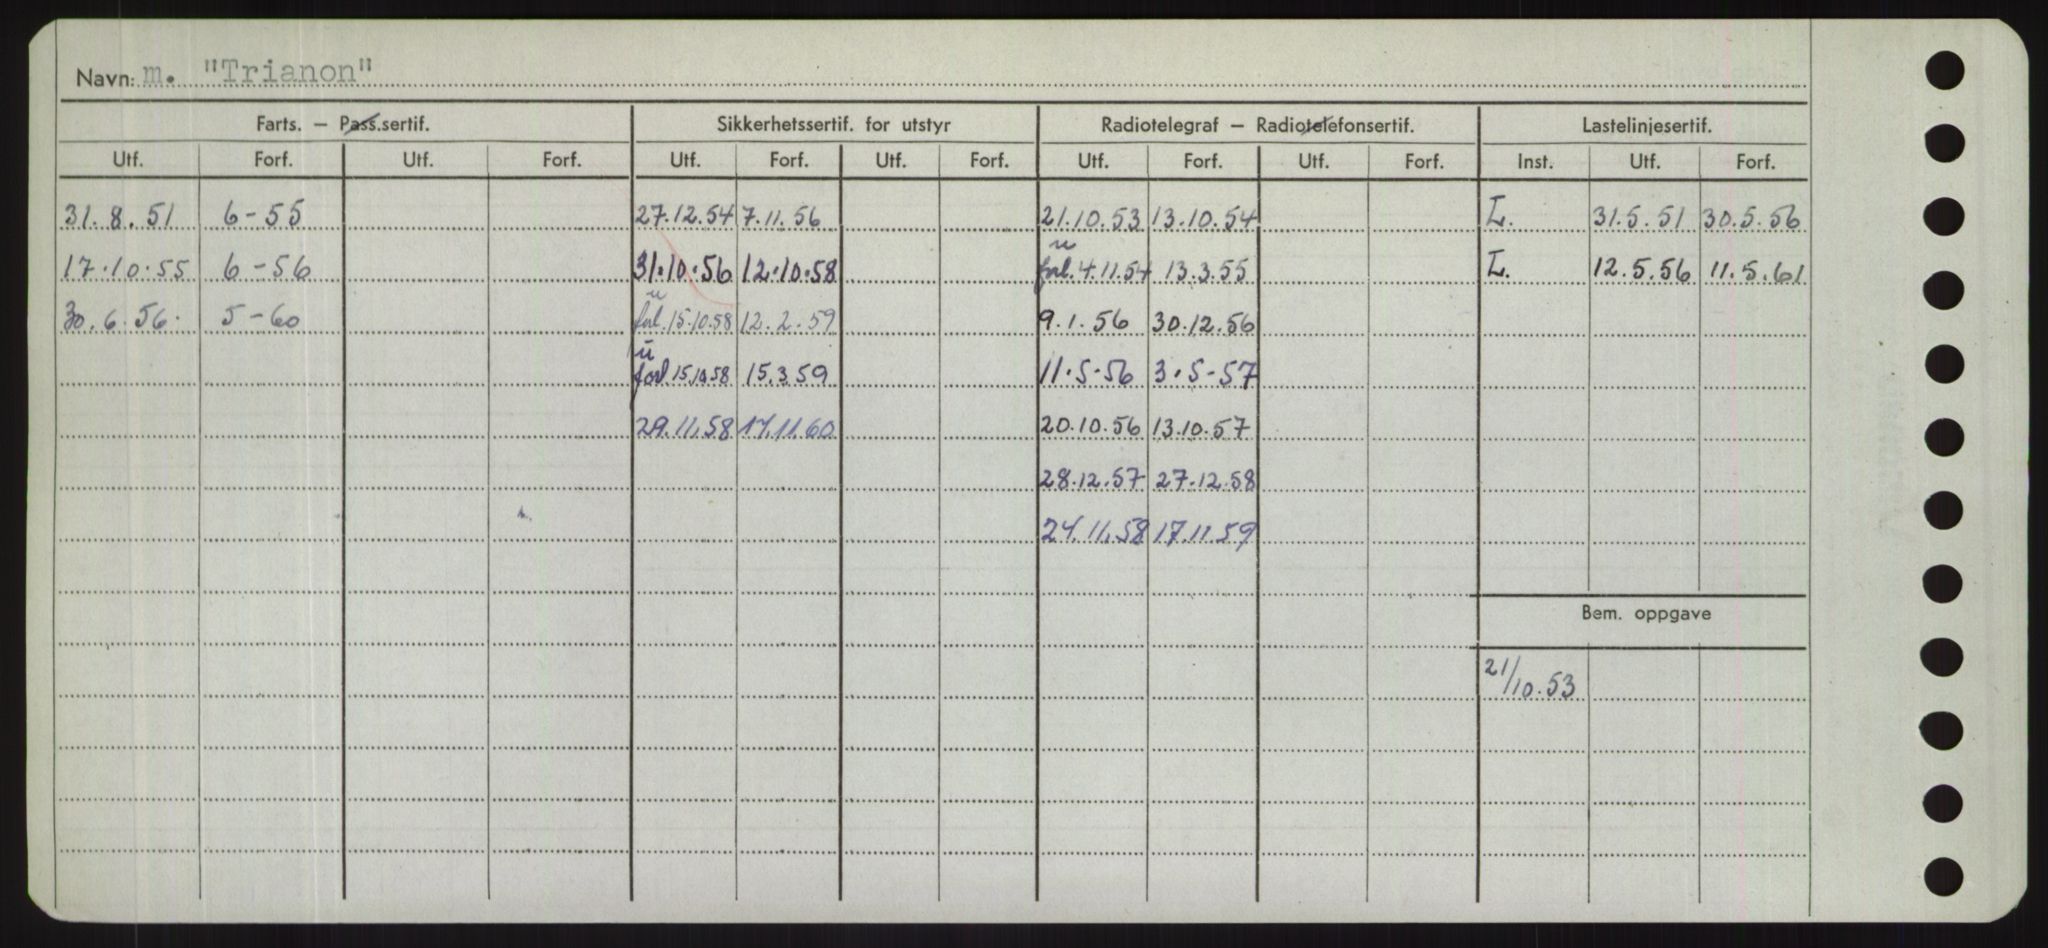 Navn: m. "Trianon"
Farts. – Pass.sertif. Sikkerhetssertif. for utstyr Radiotelegraf – Radiotelefonsertif. Lastelinjesertif.
Utf. Forf. Utf. Forf. Utf. Forf. Utf. Forf. Utf. Forf. Utf. Forf. Inst. Utf. Forf.
31.8.51 6-55 27.12.54 7.11.56 21.10.53 13.10.54 L. 31.5.51 30.5.56
17.10.55 6-56 31.10.56 12.10.58 u forl. 4.11.54 13.3.55 L. 12.5.56 11.5.61
30.6.56. 5-60 u forl. 15.10.58 12.2.59 9.1.56 30.12.56
u forl 15.10.58 15.3.59 11.5.56 3.5-57
29.11.58 17.11.60 20.10.56 13.10.57
28.12.57 27.12.58
24.11.58 17.11.59
Bem. oppgave
21/10.53